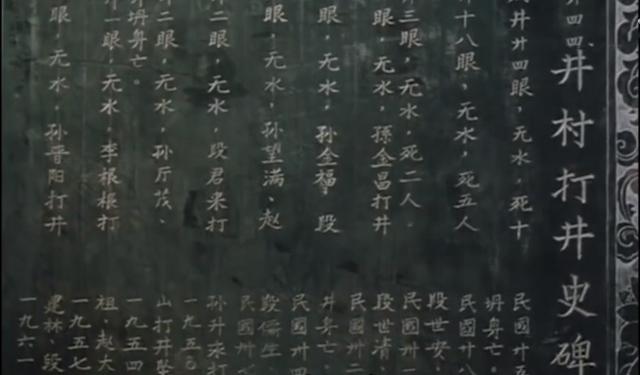 井村打井史碑
井廾四眼，无水，死十
十八眼，无水，死五人
三眼，无水，死二人。
眼，无水，孫金昌打井
眼，无水，孙金福，段
眼，无水，孙望满、赵
二眼，无水，段君来打
二眼，无水，孙斤茂、
坍身亡。
一眼，无水，李根根打
眼，无水，孙晋阳打井
民國廾五
坍身亡。
民國廾八
段世安，
民國卅一
段世清，
民國卅二
井身亡，
民國卅四
段儒生，
民國卅
孙升来打
一九五
山打井坠
一九五四
祖、赵大
一九五七
建林、段
一九六一